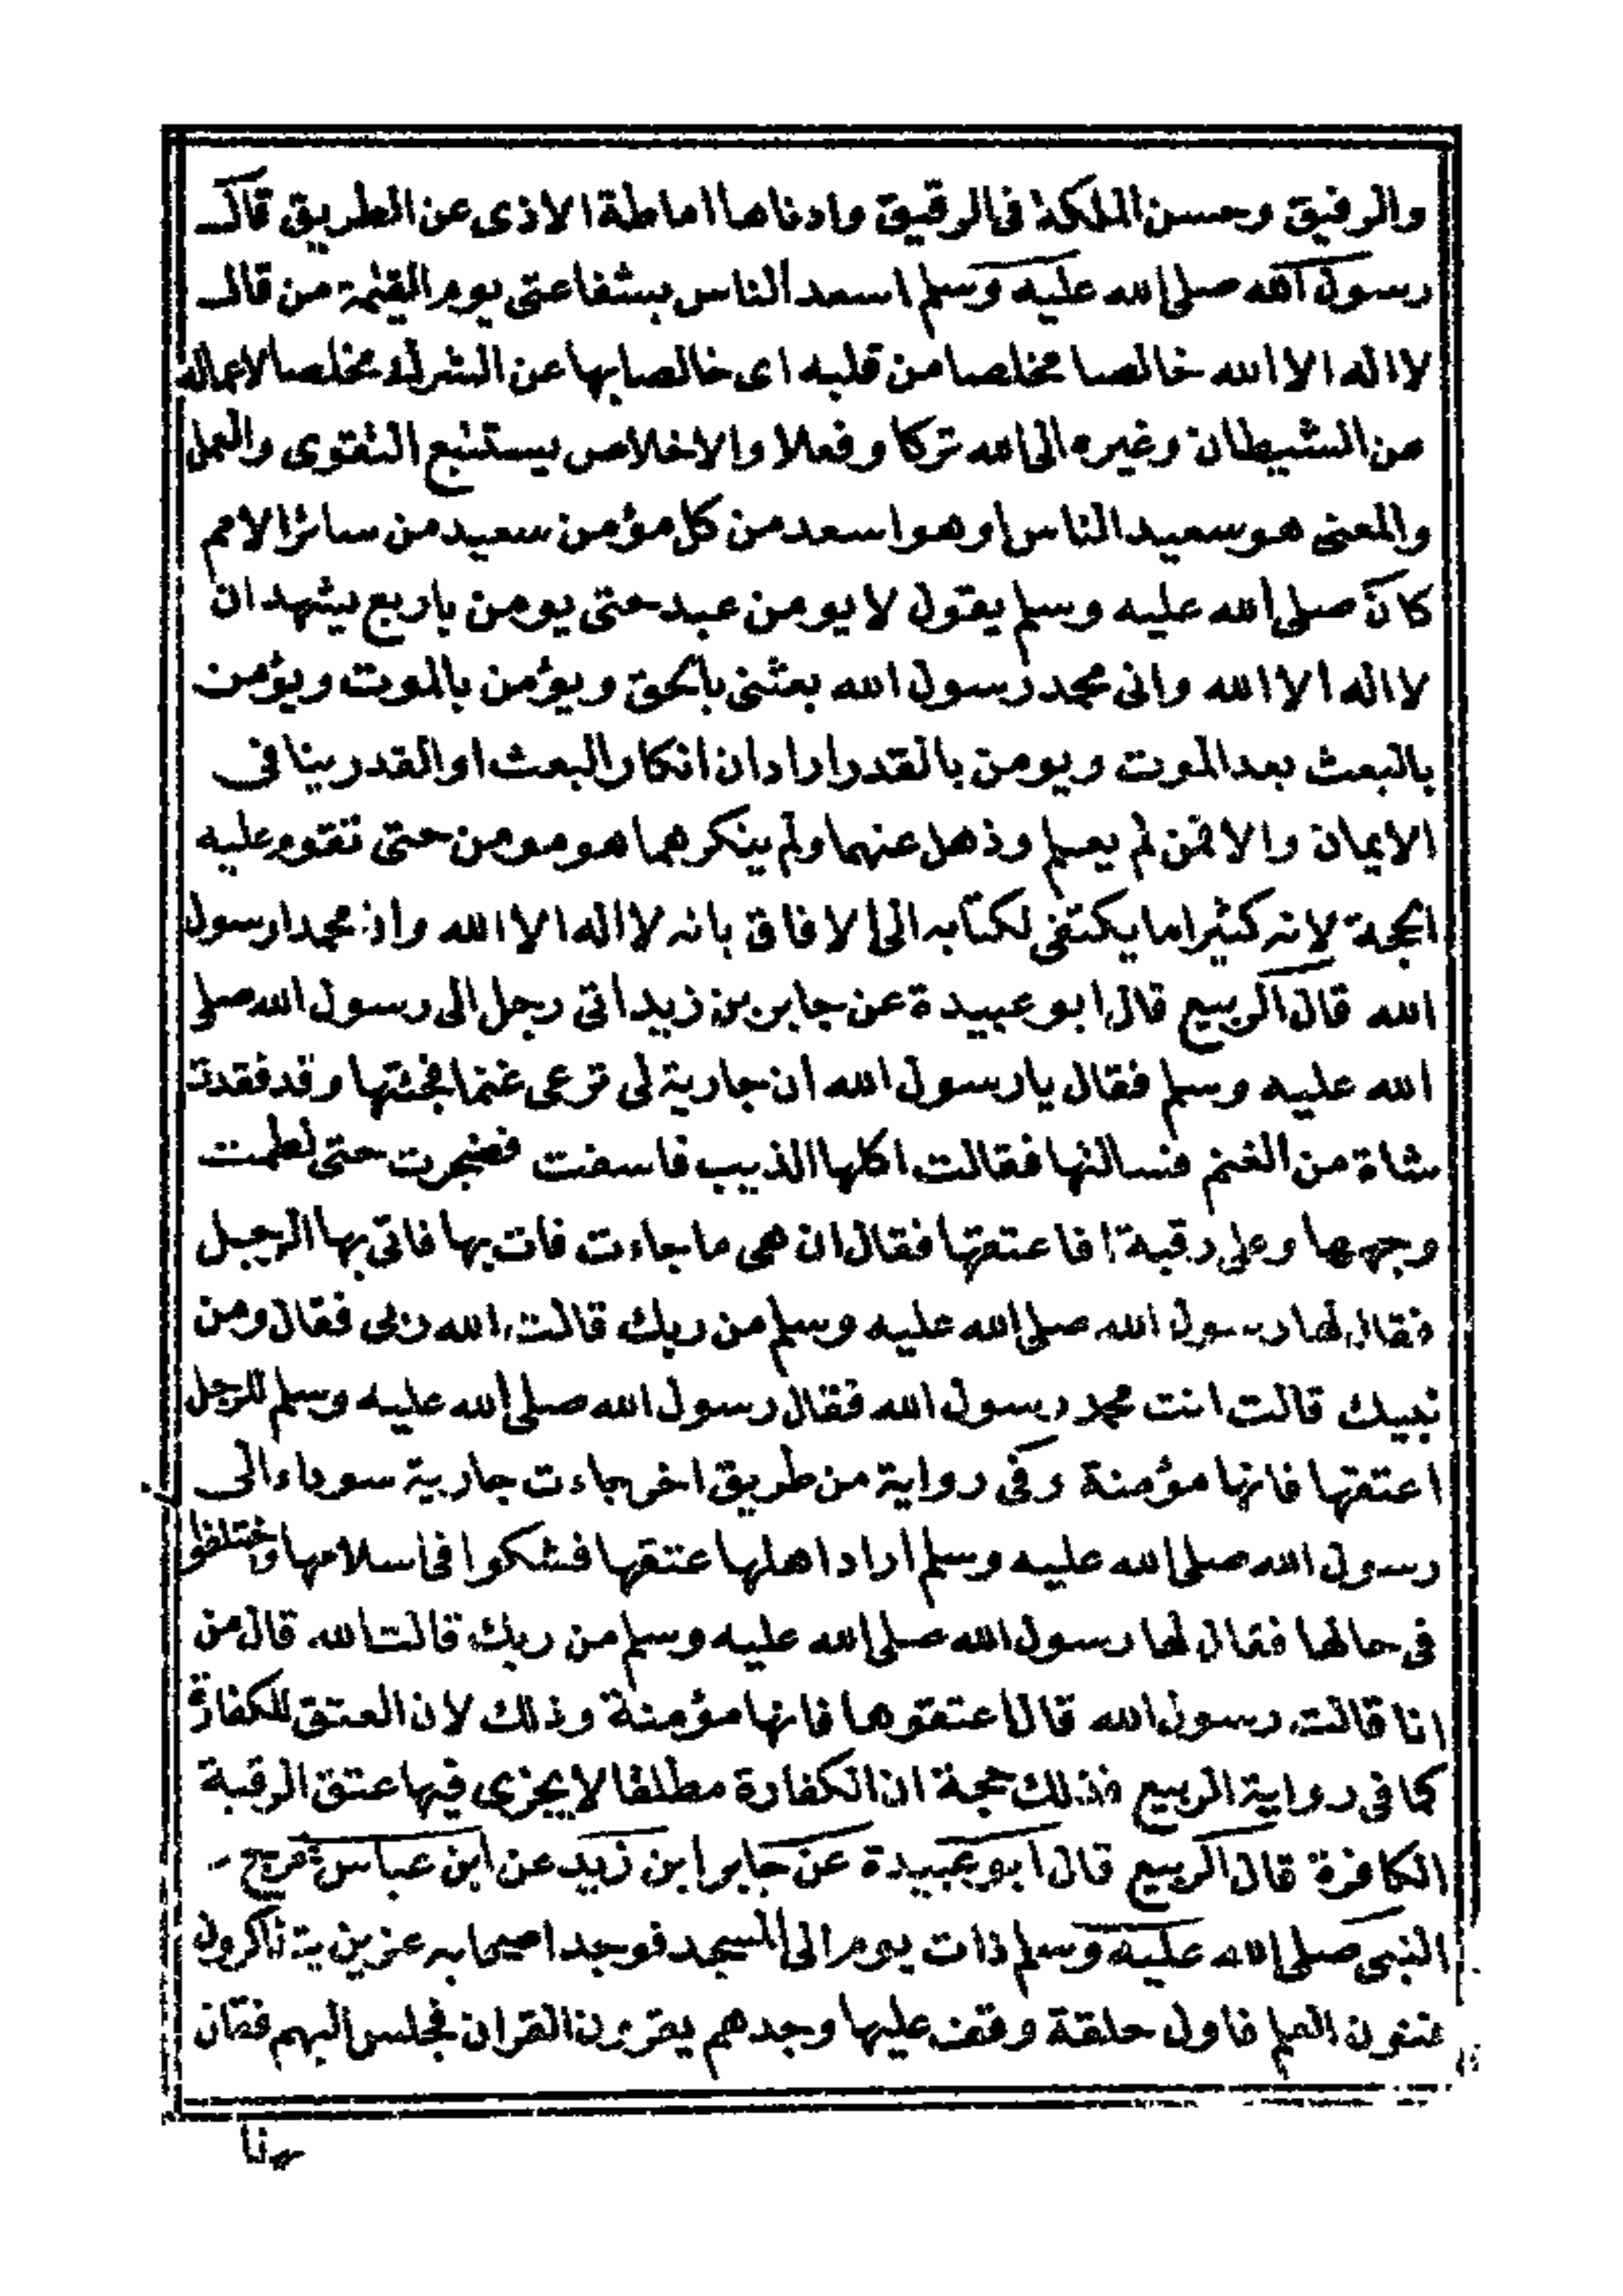 والرفيق وحسن الملكة فى الرقيق وادناها اماطة الاذى عن الطريق قال
رسول الله صلى الله عليه وسلم اسعد الناس بشفاعتى يوم القيمة من قال
لا اله الا الله خالصا مخلصا من قلبه اى خالصا بها عن الشرك مخلصا لاعماله
من الشيطان وغيره الى الله تركا وفعلا والاخلاص يستتبع التقوى والعمل
والمعنى هو سعيد الناس او هو اسعد من كل مؤمن سعيد من سائر الامم
كان صلى الله عليه وسلم يقول لا يومن عبد حتى يومن باربع يشهد ان
لا اله الا الله وانى محمد رسول الله بعثنى بالحق ويؤمن بالموت ويؤمن
بالبعث بعد الموت ويومن بالقدر اراد ان انكار البعث او القدر ينافى
الايمان والا فمن لم يعلم وذهل عنهما ولم ينكرهما هو مومن حتى تقوم عليه
الحجة لانه كثيرا ما يكتفى لكتابه الى الافاق بانه لا اله الا الله وان محمدا رسول
الله قال الربيع قال ابو عبيدة عن جابر بن زيد اتى رجل الى رسول الله صلى
الله عليه وسلم فقال يا رسول الله ان جارية لى ترعى غنما فجئتها وقد فقدت
شاة من الغنم فسالتها فقالت اكلها الذيب فاسفت فضجرت حتى لطمت
وجهها وعلى رقبة افاعتقها فقال ان هى ما جاءت فات بها فاتى بها الرجل
فقال لها رسول الله صلى الله عليه وسلم من ربك قالت الله ربى فقال ومن
نبيك قالت انت محمد رسول الله فقال رسول الله صلى الله عليه وسلم للرجل
اعتقها فانها مؤمنة وفى رواية من طريق اخر جاءت جارية سوداء الى
رسول الله صلى الله عليه وسلم اراد اهلها عتقها فشكوا فى اسلامها واختلفوا
فى حالها فقال لها رسول الله صلى الله عليه وسلم من ربك قالت الله قال من
انا قالت رسول الله قال اعتقوها فانها مؤمنة وذلك لان العتق للكفارة
كما فى رواية الربيع فذلك حجة ان الكفارة مطلقا لا يجزى فيها عتق الرقبة
الكافرة قال الربيع قال ابو عبيدة عن جابر ابن زيد عن ابن عباس خرج
النبى صلى الله عليه وسلم ذات يوم الى المسجد فوجد اصحابه عزين يتذاكرون
فنون العلم فاول حلقة وقف عليها وجدهم يقرءون القران فجلس اليهم فقال
بهذا